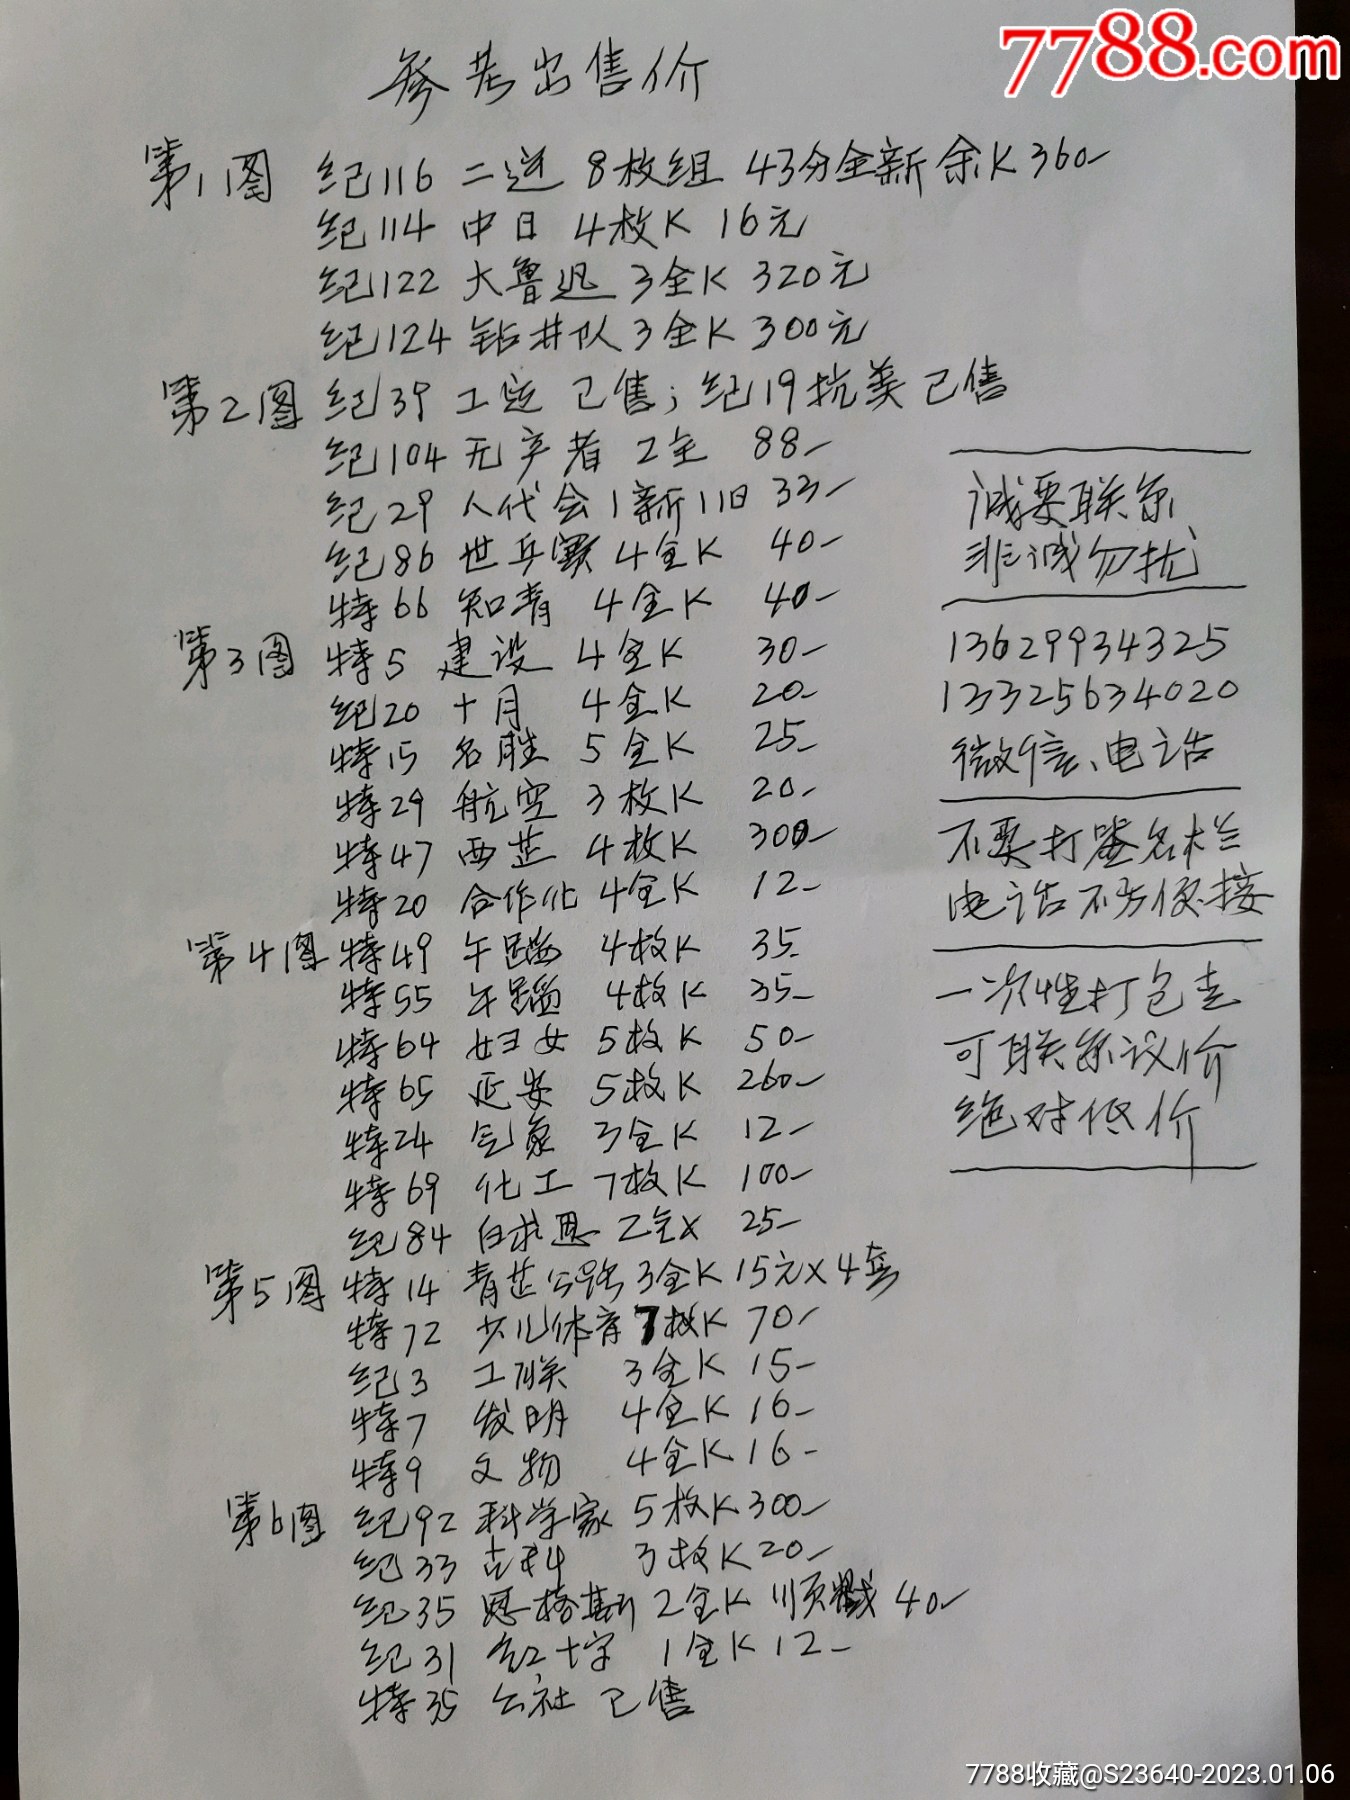 7788.com
参考出售价
第1图 纪116 二运 8枚组 43分全新 余K 360-
纪114 中日 4枚K 16元
纪122 大鲁迅 3全K 320元
纪124 钻井队 3全K 300元
第2图 纪39 工运 已售; 纪19抗美 已售
纪104 无产者 2全 88-
纪29 人代会 1新1旧 33-
纪86 世乒赛 4全K 40-
特66 知青 4全K 40-
第3图 特5 建设 4全K 30-
纪20 十月 4全K 20-
特15 名胜 5全K 25-
特29 航空 3枚K 20-
特47 西芷 4枚K 300-
特20 合作化 4全K 12-
第4图 特49 午蹈 4枚K 35-
特55 午蹈 4枚K 35-
特64 妇女 5枚K 50-
特65 延安 5枚K 260-
特24 气象 3全K 12-
特69 化工 7枚K 100-
纪84 白求恩 2全X 25-
第5图 特14 青芷公路 3全K 15元X4套
特72 少儿体育 7枚K 70-
纪3 工联 3全K 15-
特7 发明 4全K 16-
特9 文物 4全K 16-
第6图 纪92 科学家 5枚K 300-
纪33 古科 3枚K 20-
纪35 恩格斯 2全K 顺戳 40-
纪31 红十字 1全K 12-
特35 公社 已售
诚要联系
非诚勿扰
13629934325
13325634020
微信、电话
不要打签名栏
电话不方便接
一次性打包走
可联系议价
绝对低价
7788收藏@S23640-2023.01.06